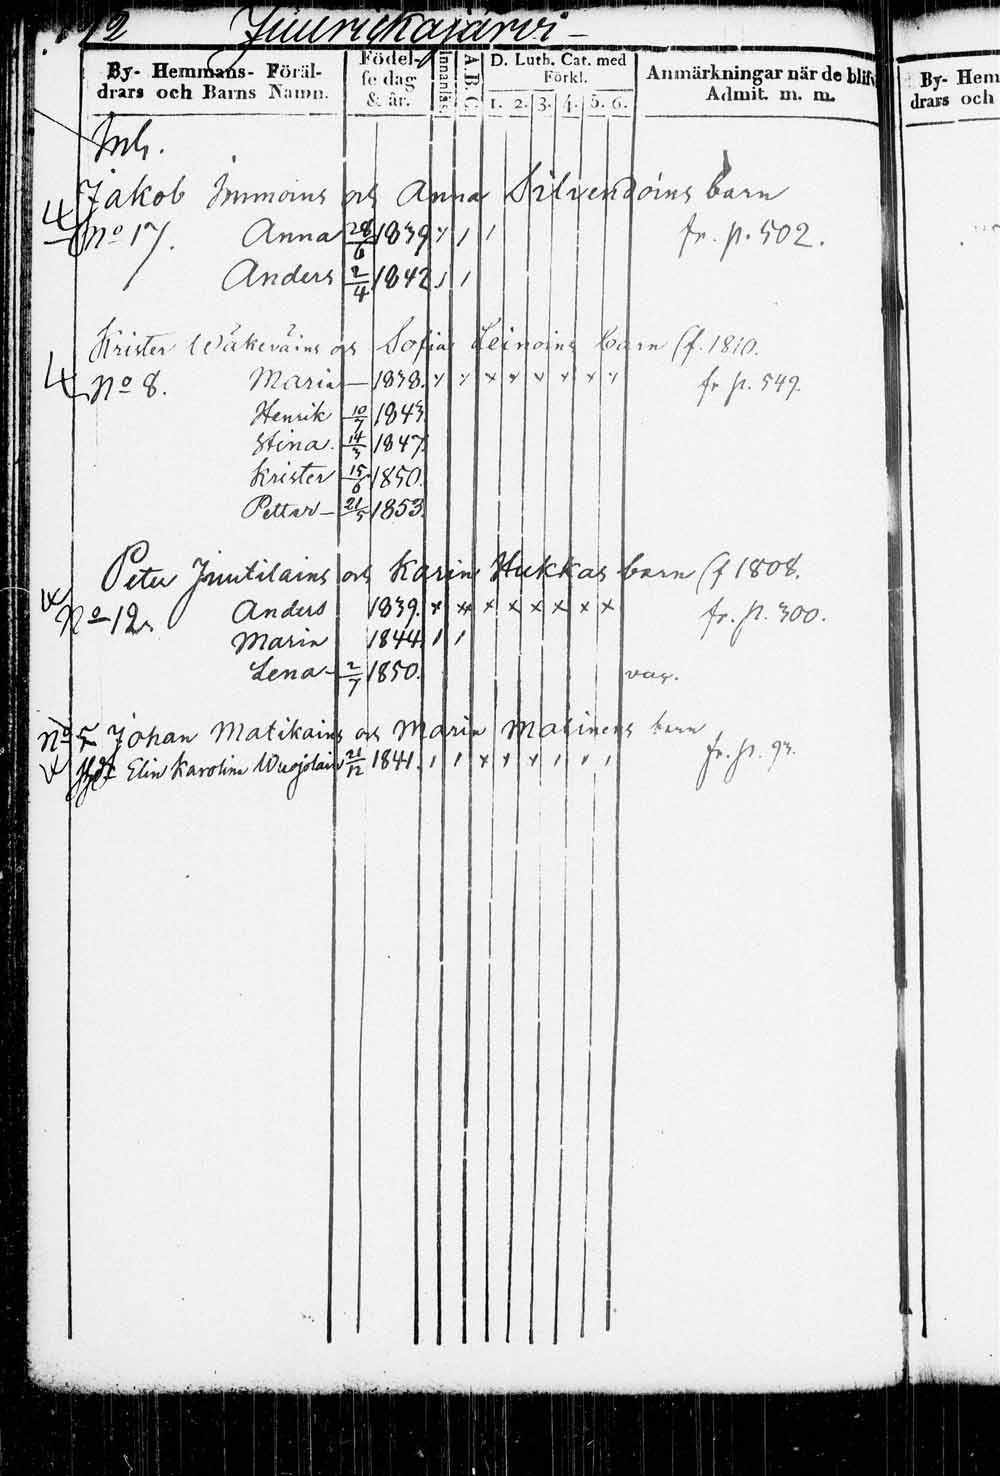 Juurickajärvi
By- Hemmans- Föräl-
drars och Barns Namn.
Födel-
se dag
& år.
Innanläs.
A.B.C.
D. Luth. Cat. med
Förkl.
1. 2. 3. 4. 5. 6.
Anmärkningar när de blifv
Admit. m. m.
By- Hem
drars och
Inh.
Jakob Immoins och Anna Silvendoins barn
4 No 17. Anna 28/6 1839 fr. p. 502.
Anders 2/4 1842
Krister Wäkeväins och Sofia Leinoins barn (f. 1810.
4 No 8. Maria 1838. x x x x x x x x fr p. 549.
Henrik 10/7 1843
Stina 14/3 1847
Krister 15/6 1850.
Pettar 21/5 1853.
Peter Juutilains och Karin Hukkas barn (f 1808.
4 No 12. Anders 1839. x x x x x x x x fr. p. 300.
Maria 1844.
Lena 2/7 1850. vac.
No 5 Johan Matikains och Maria Matinens barn
Elin Karolina Wuojolain 21/12 1841. fr. p. 93.